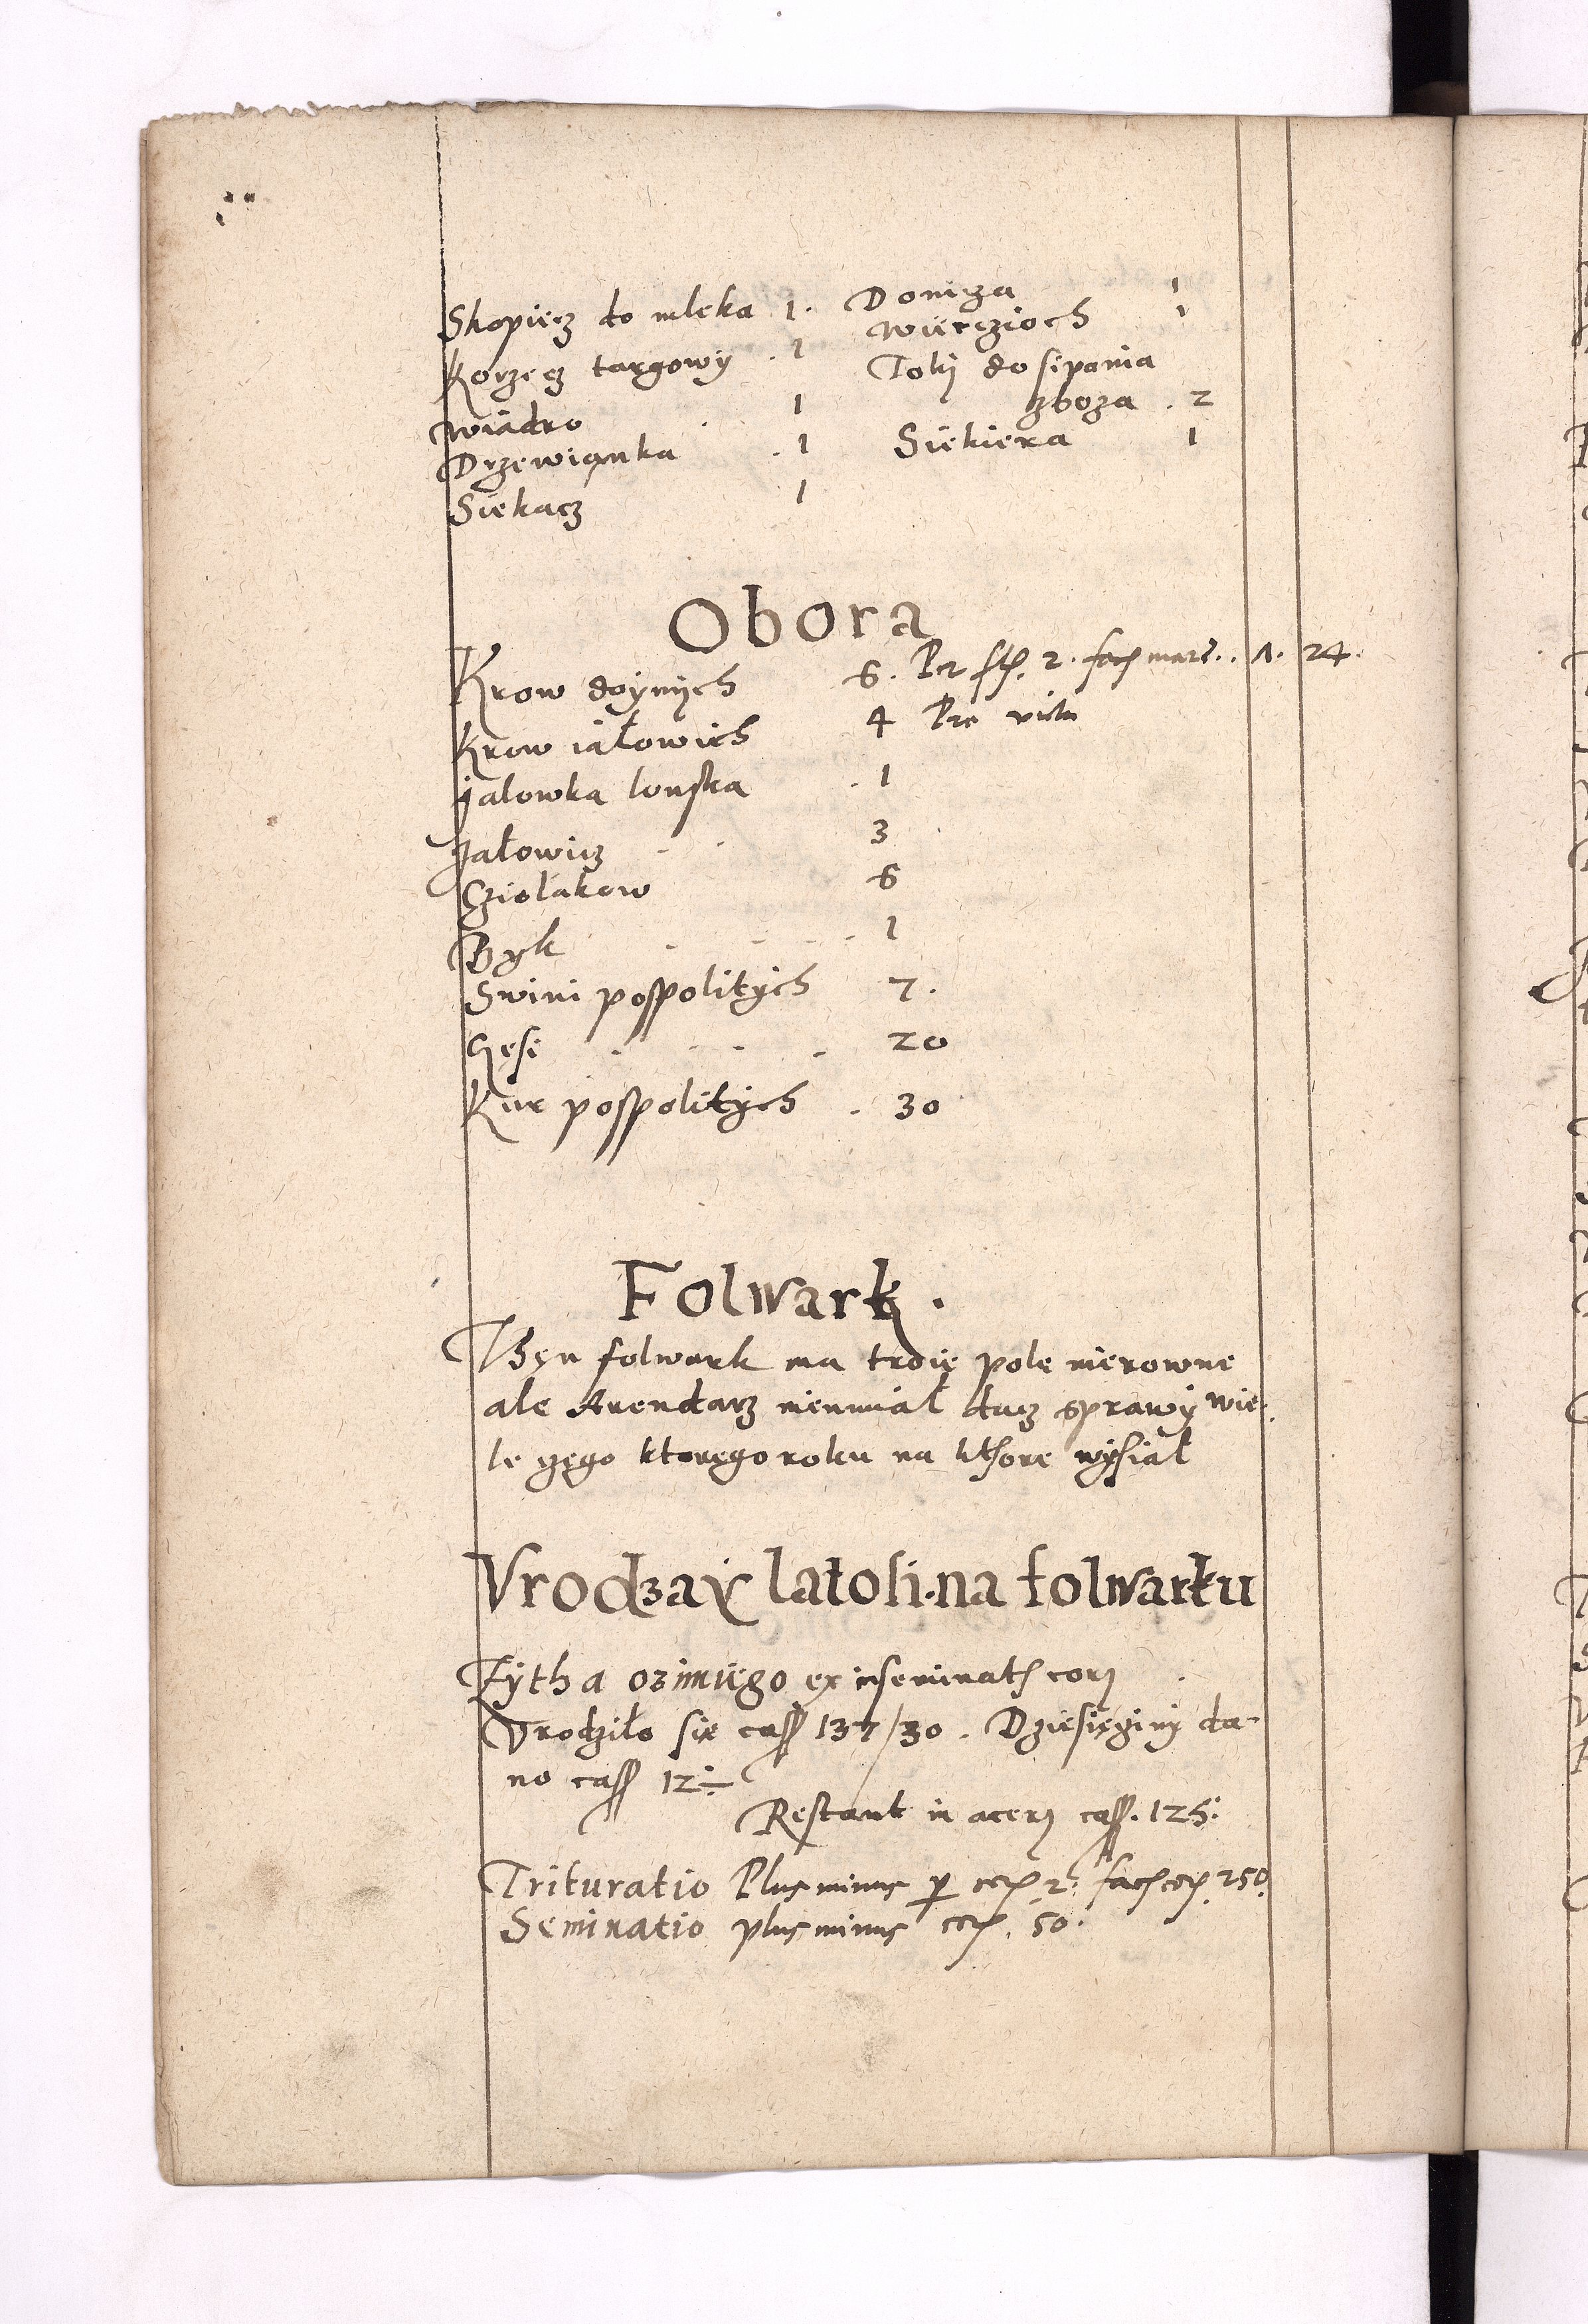 Skopięcz do mleka 1. Doniza 1
Korzecz targowy . 1 Wierczioch 1
Wiadro . 1 Tokj do sipania
zboza . 2
Drzewianka . 1 Siekiera 1
Siekacz 1
Obora
Krow doynych 6. 2. 1. 24.
Krow iałowich 4 Pro victu
Jalowka lonska . 1
Jałowicz . . 3
Cziolakow 6
Byk . . . . 1
Swini pospolitych 7.
Gęsi . . . . 20
Kur pospolitych . 30
Folwark.
Then folwark ma troie pole nierowne
ale Arendarz nienmiał dacz sprawy wie
le czego ktorego roku na ktore wysiał
Vrodzay latosi na folwarku
Zytha ozimiego ex inseminat corj .
Vrodziło się cass 137/30. Dziesięciny da-
no cass 12÷
Restant in acerj cass. 125.
Trituratio Plus minus per cor 2. fac cor. 250.
Seminatio plus minus cor. 50.